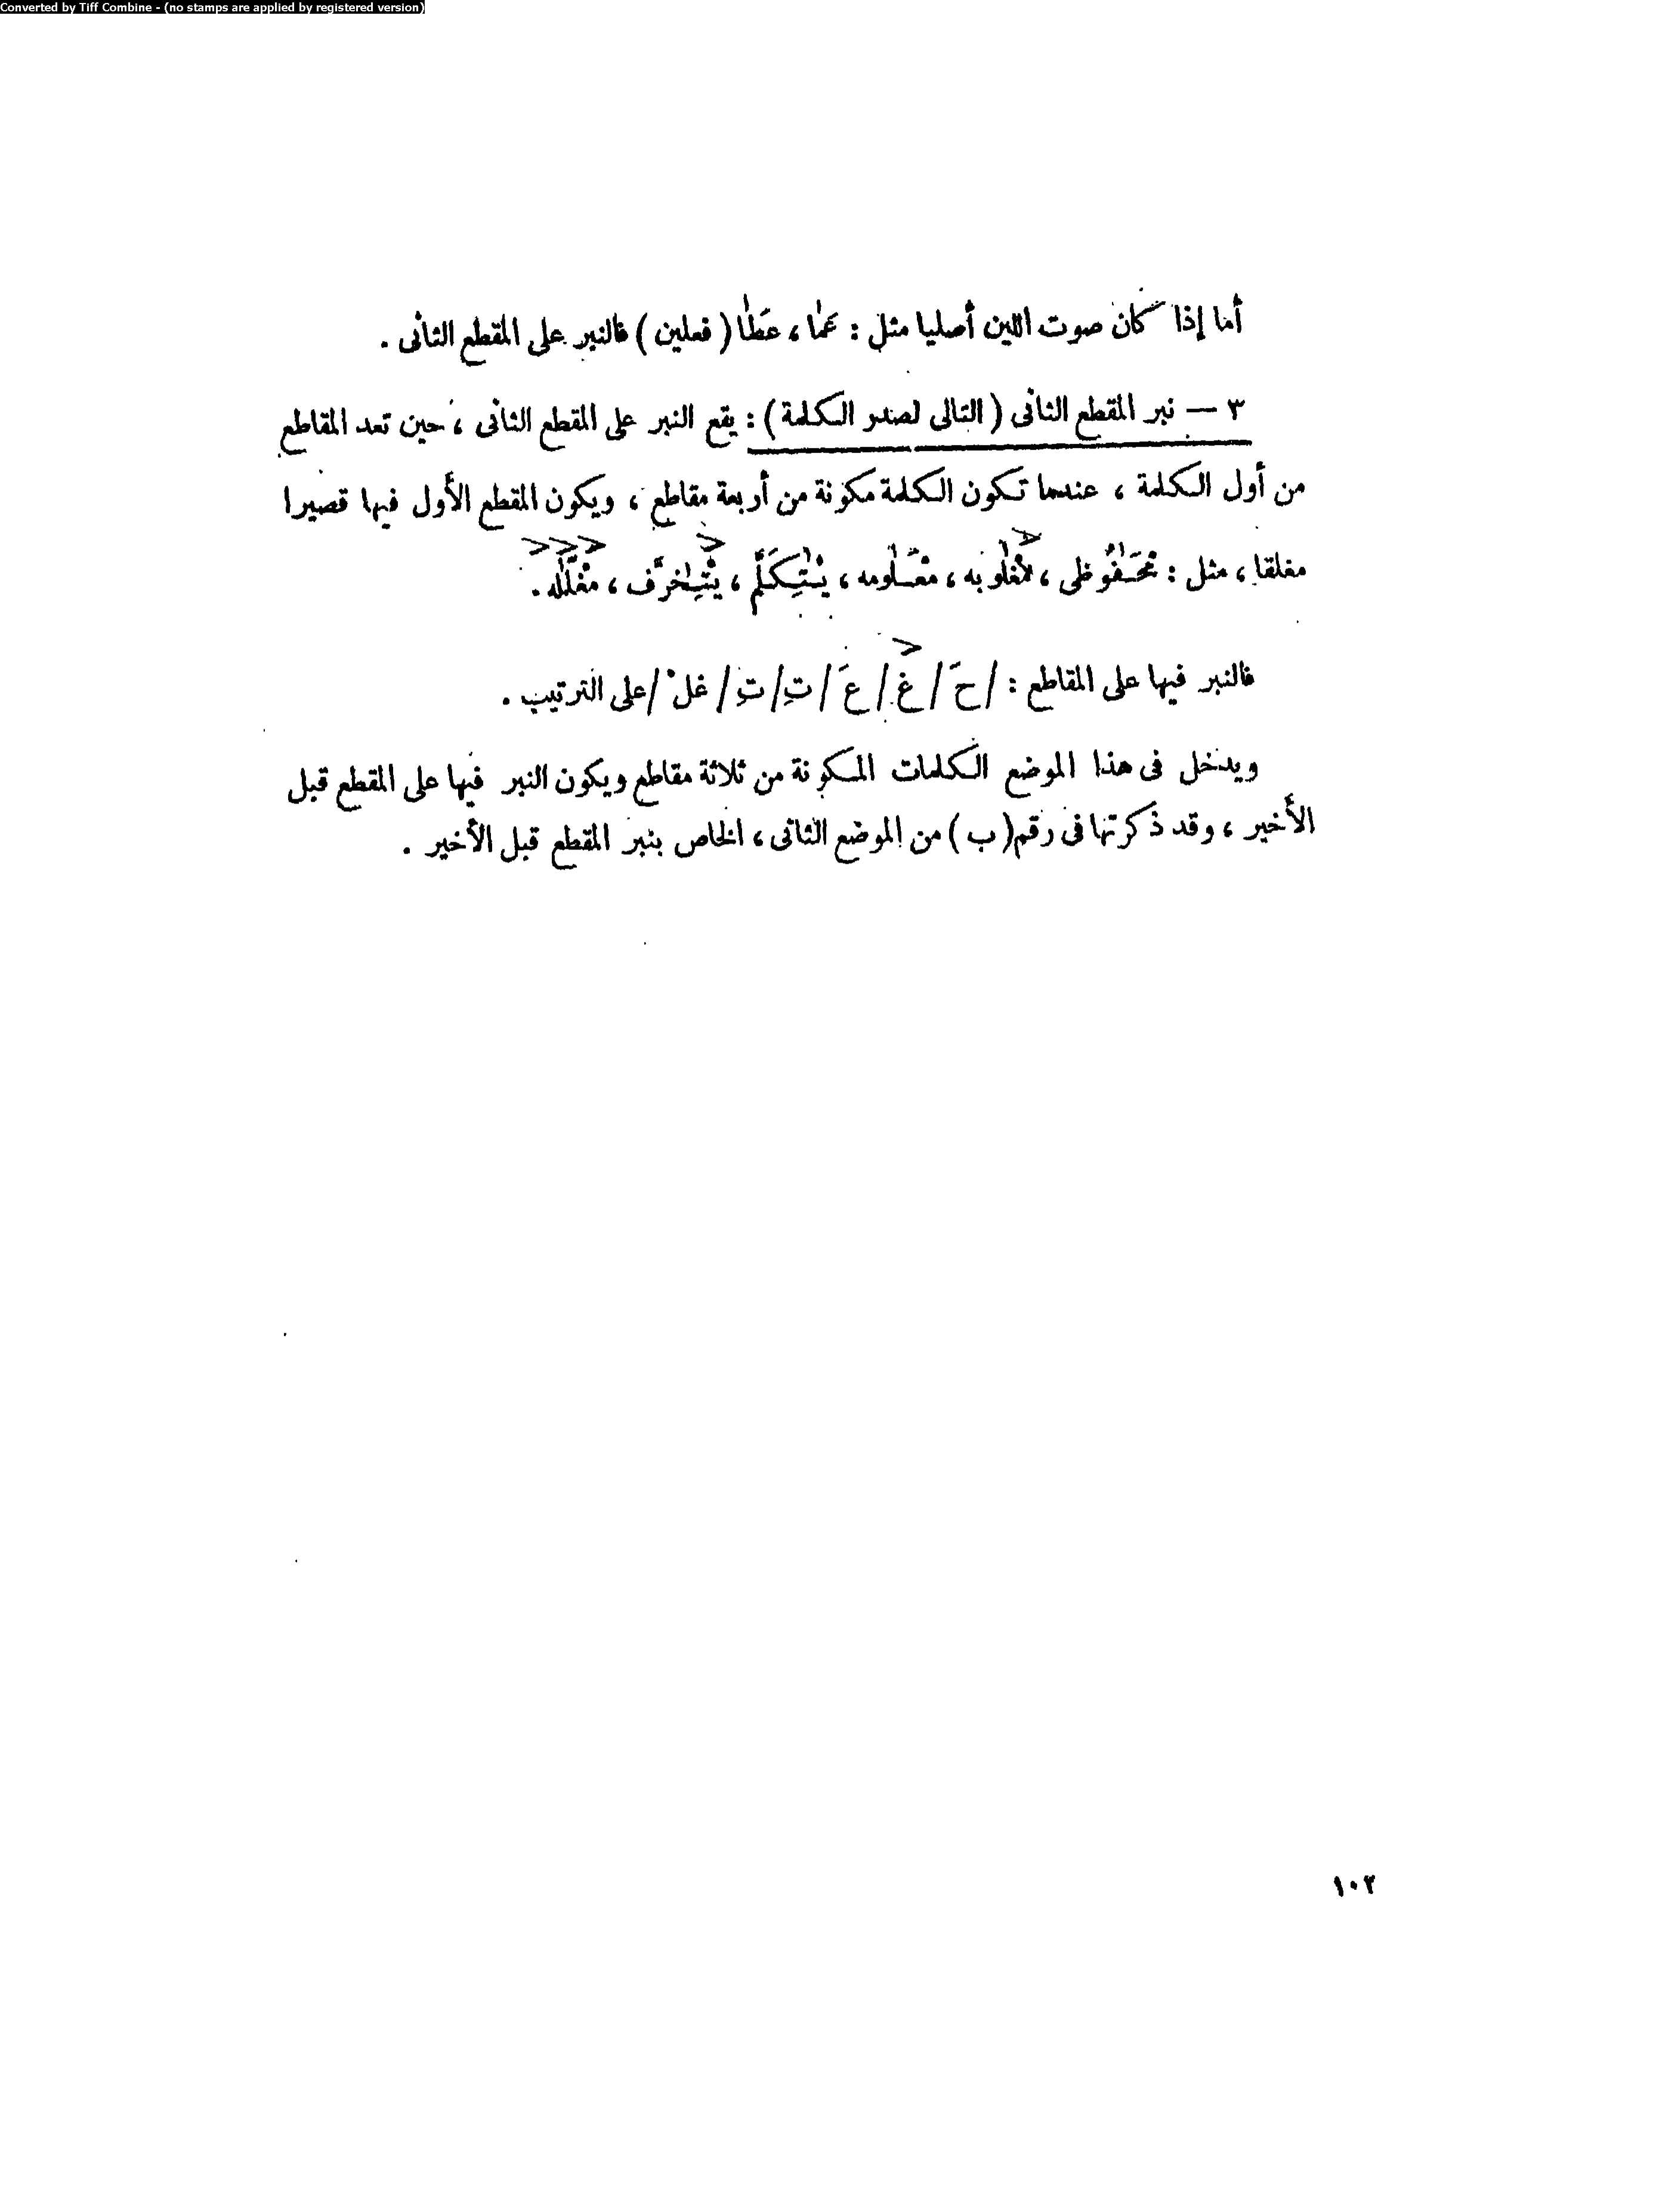 Converted by Tiff Combine - (no stamps are applied by registered version)
أما إذا كان صوت اللين أصليا مثل : عمَا ، عَطَا ( فعلين ) فالنبر على المقطع الثانى .
٣ — نبر المقطع الثانى ( التالى لصدر الكلمة ) : يقع النبر على المقطع الثانى ، حين تعد المقاطع
من أول الكلمة ، عندما تكون الكلمة مكونة من أربعة مقاطع ، ويكون المقطع الأول فيها قصيرا
مغلقا ، مثل : محَفُوظى ، مغلوبه ، معْلومه ، يتِكَلِّم ، يتِخَرَّف ،
فالنبر فيها على المقاطع : / حَ / غ / عَ / تِ / تِ / غلْ / على الترتيب .
ويدخل فى هذا الموضع الكلمات المكونة من ثلاثة مقاطع ويكون النبر فيها على المقطع قبل
الأخير ، وقد ذكرتها فى رقم ( ب ) من الموضع الثانى ، الخاص بنبر المقطع قبل الأخير .
١٠٢